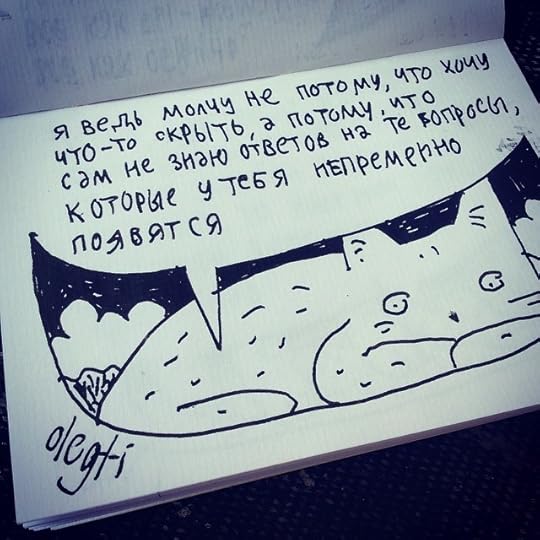 я ведь молчу не потому, что хочу
что-то скрыть, а потому, что
сам не знаю ответов на те вопросы,
которые у тебя непременно
появятся
olegti